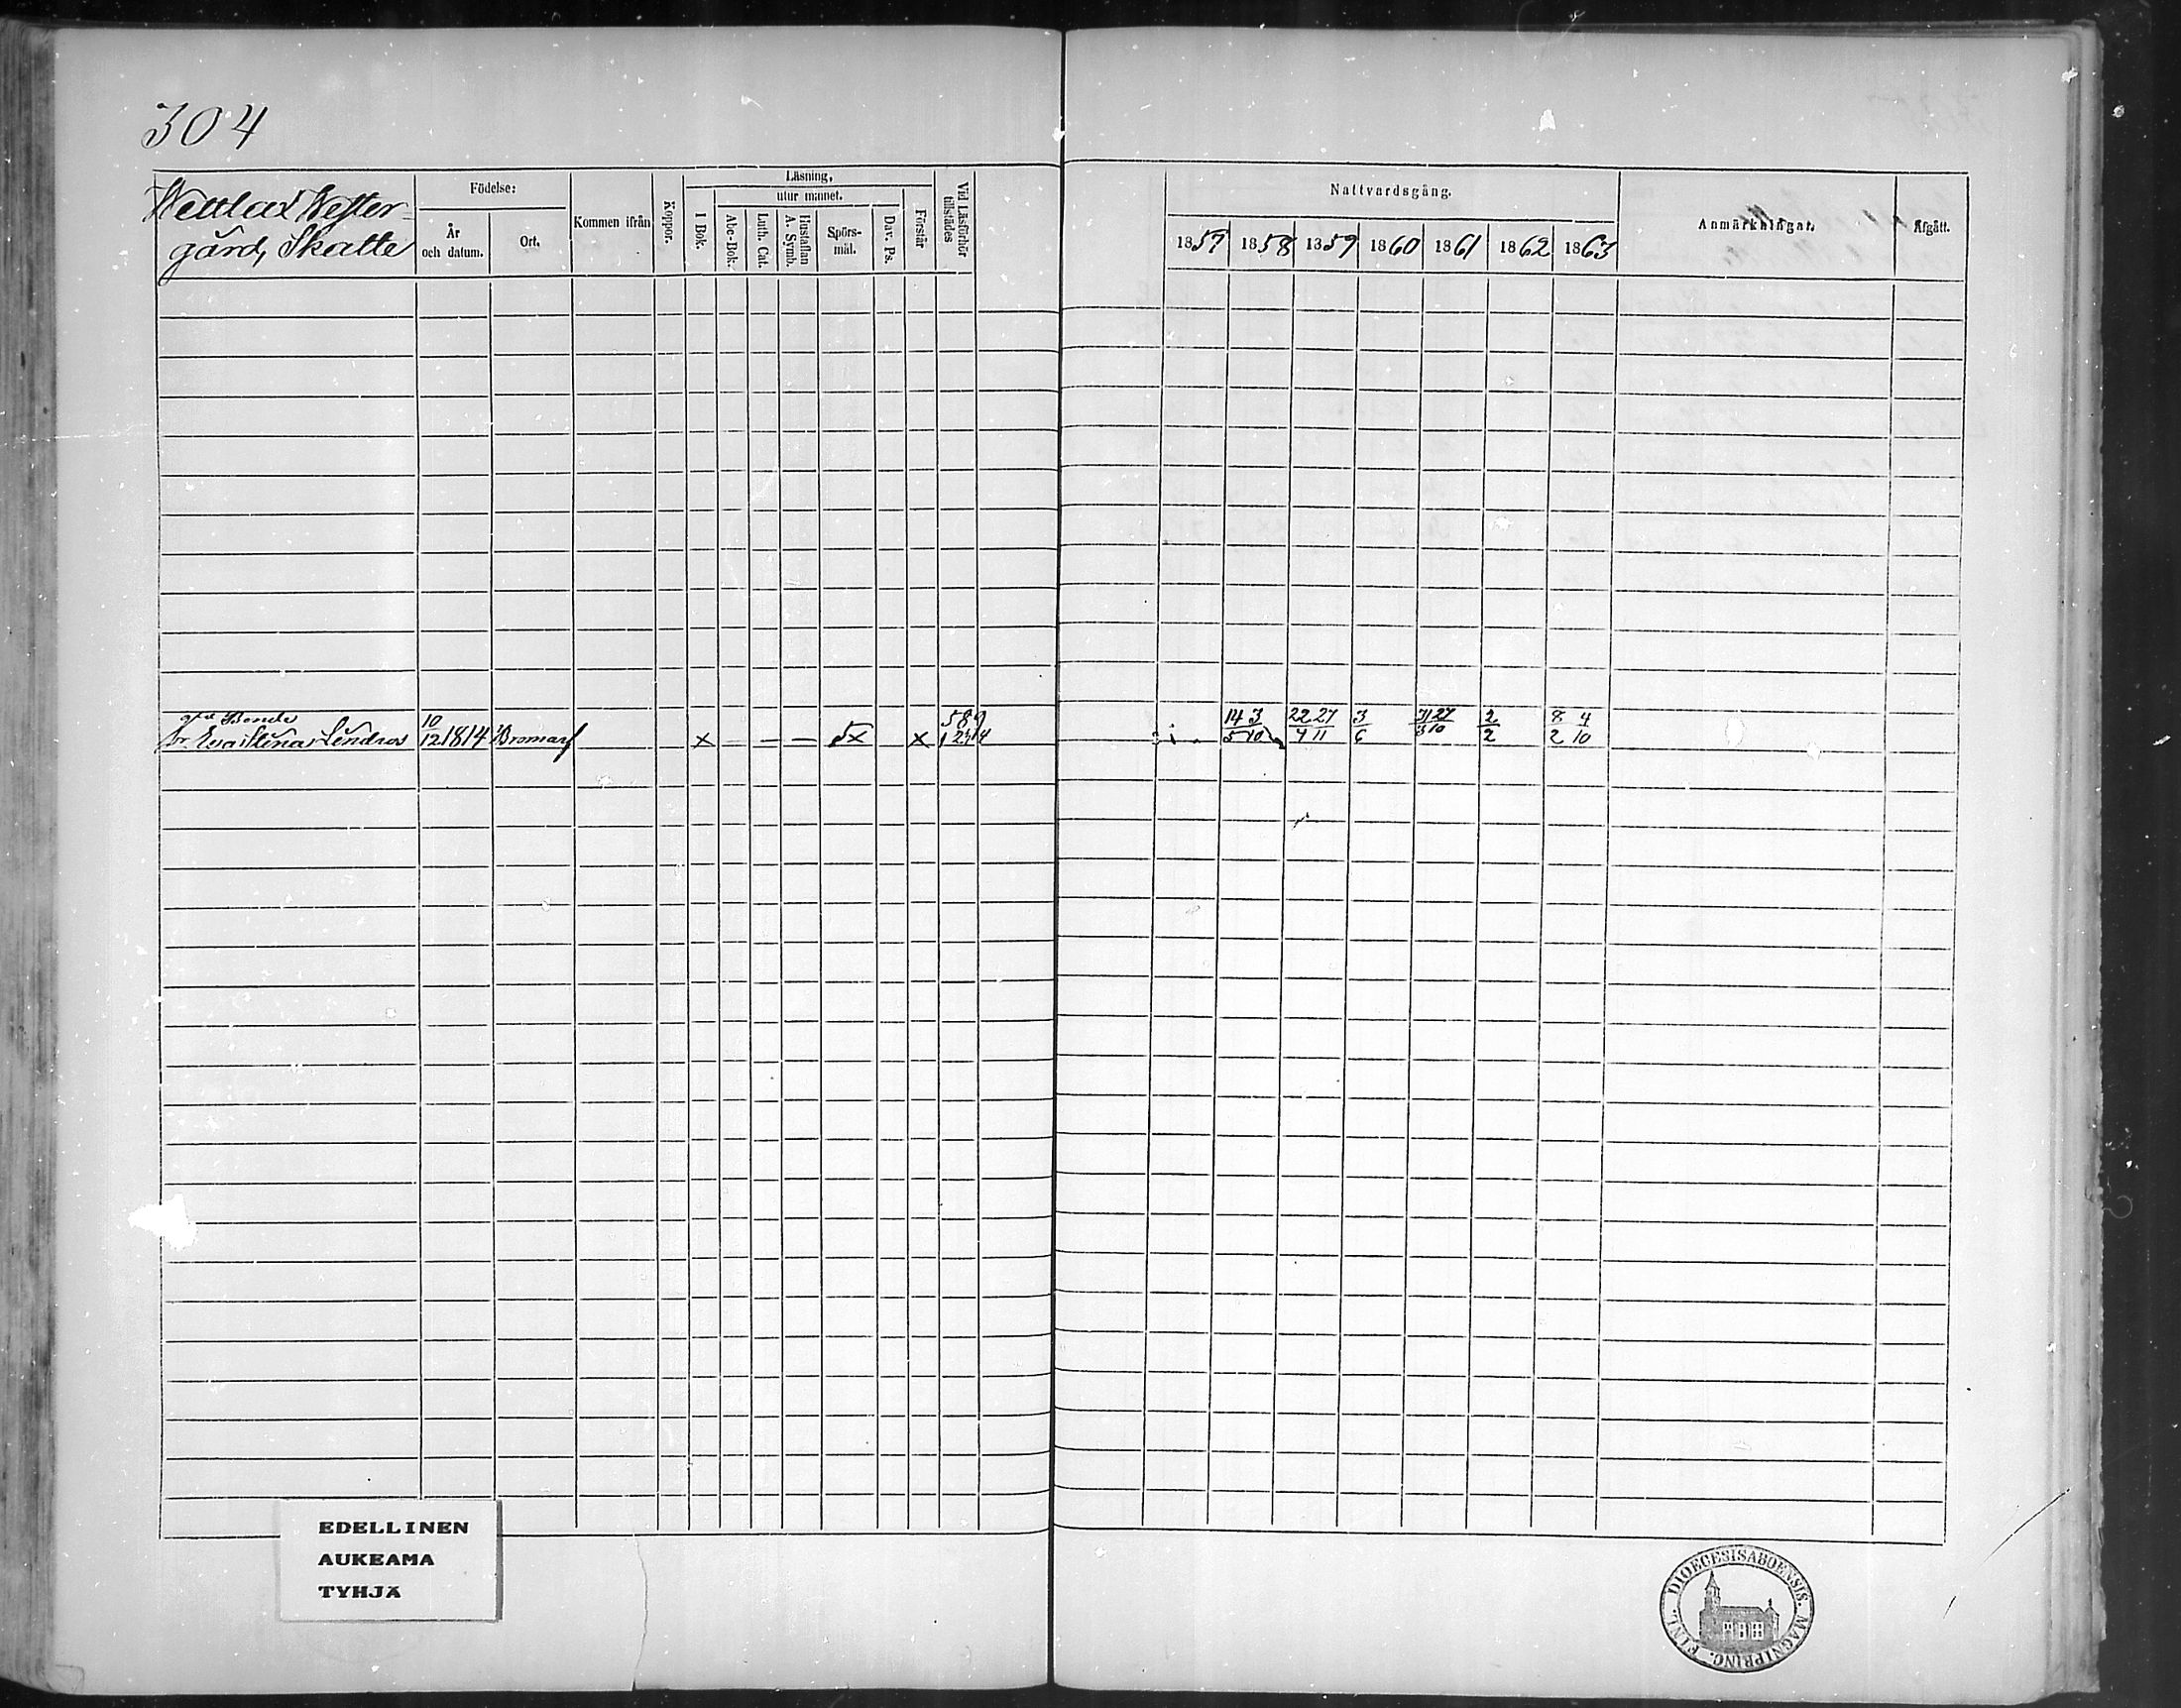 304
Wettlax Wester-
gård, Skatte
Födelse:
År och datum.
Ort.
Kommen ifrån
Koppor.
Läsning,
utur minnet.
I Bok.
Abc-Bok.
Luth. Cat.
Hustaflan A. Symb.
Spörs-mål.
Dav. Ps.
Förstår
Vid Läsförhör tillstädes
Nattvardsgång.
1857 1858 1859 1860 1861 1862 1863
Anmärkningar.
Afgått.
Bonde
10 589 14 3 22 27 3 31 27 2 8 4
Lena 12 1814 Bromarf x — — — x x 5 10 4 11 6 3 10 2 2 10
EDELLINEN
AUKEAMA
TYHJÄ
FINL. DIOECESIS ABOENSIS. MAGNI PRINC.